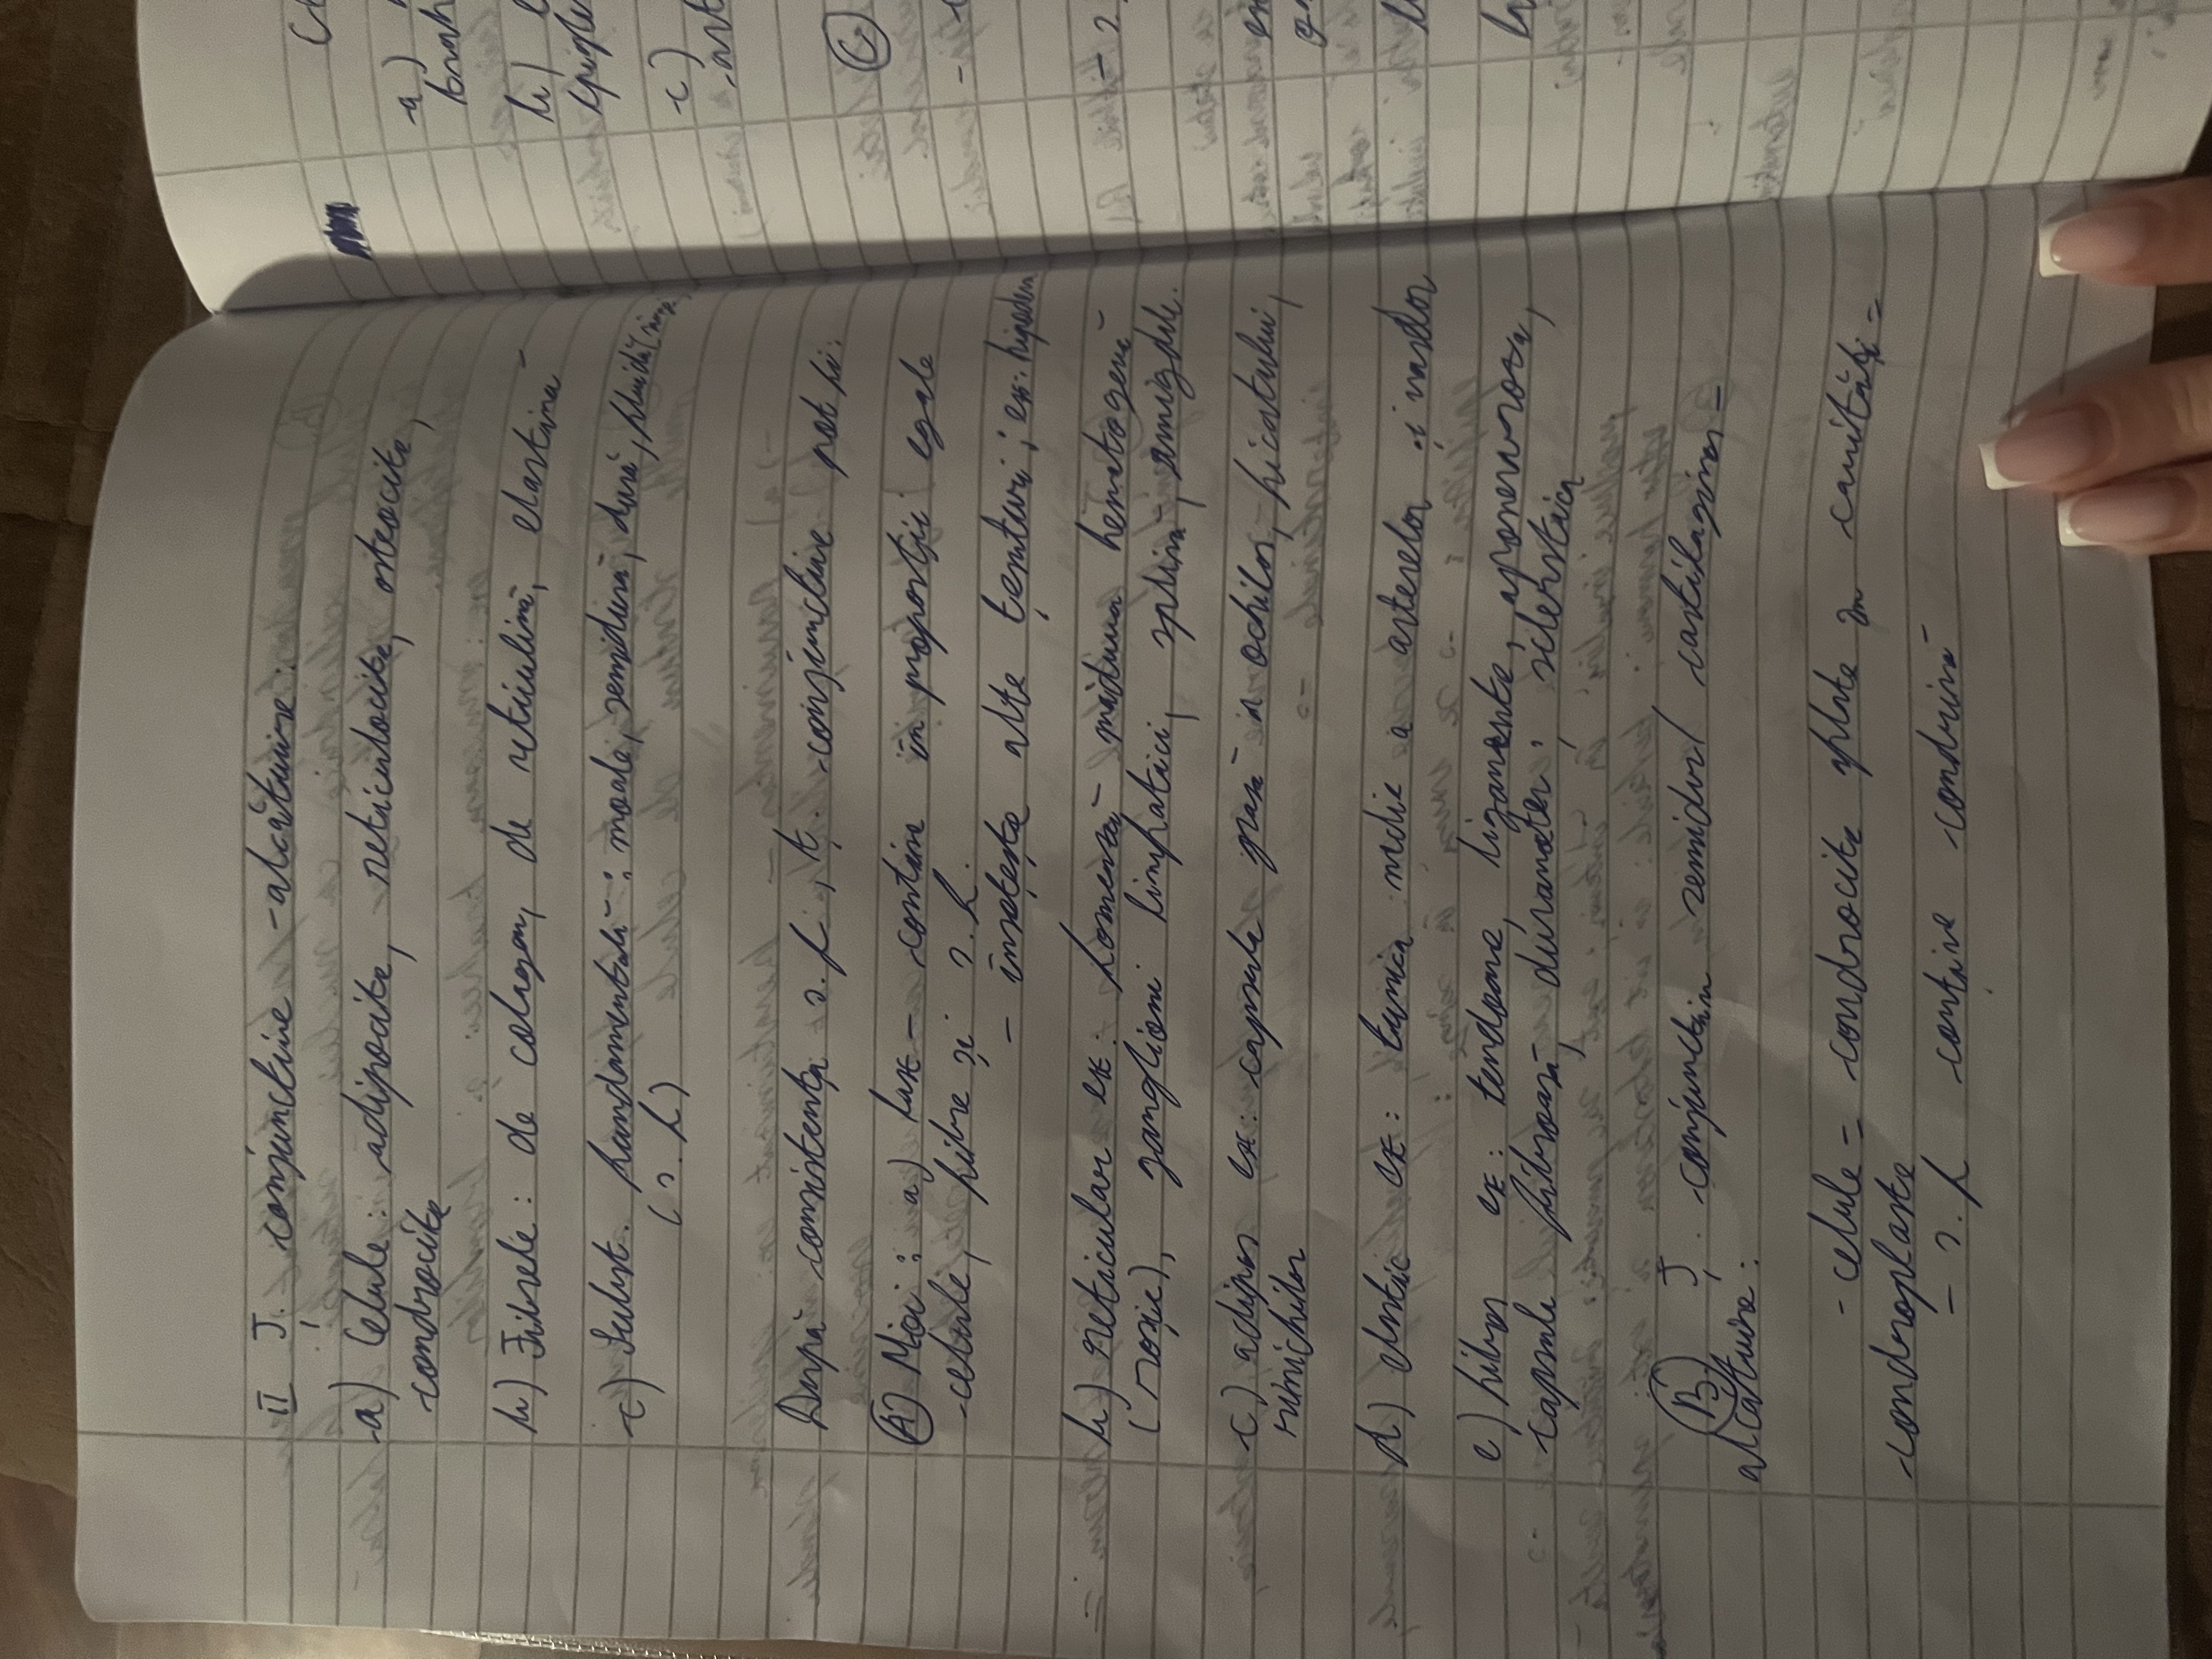 II Ț. conjunctive - alcătuire:
a) Celule: adipocite, reticulocite, osteocite,
condrocite
b) Fibrele: de colagen, de reticulină, elastina
c) Subst. fundamentală: moale, semidură, dură, fluidă
(s. f.)
După consistența s. f., ț. conjunctive pot fi:
(A) Moi: a) lax - conține în proporții egale
celule, fibre și s. f.
- însoțește alte țesuturi; ex: hipoderm
b) reticular ex: formează măduva hematogenă
(roșie), ganglioni limfatici, splină, amigdale.
c) adipos ex: capsula grasă a ochilor, ficatului,
rinichilor
d) elastic ex: tunica medie a arterelor și venelor
e) fibros ex: tendoane, ligamente, aponevroza,
capsule fibroasă, duramater, sclerotica
(B) Ț. conjunctiv semidur / cartilaginos -
alcătuire:
- celule = condrocite aflate în cavități =
condroplaste
- s. f. conține condrină
a)
b)
c)
(C)